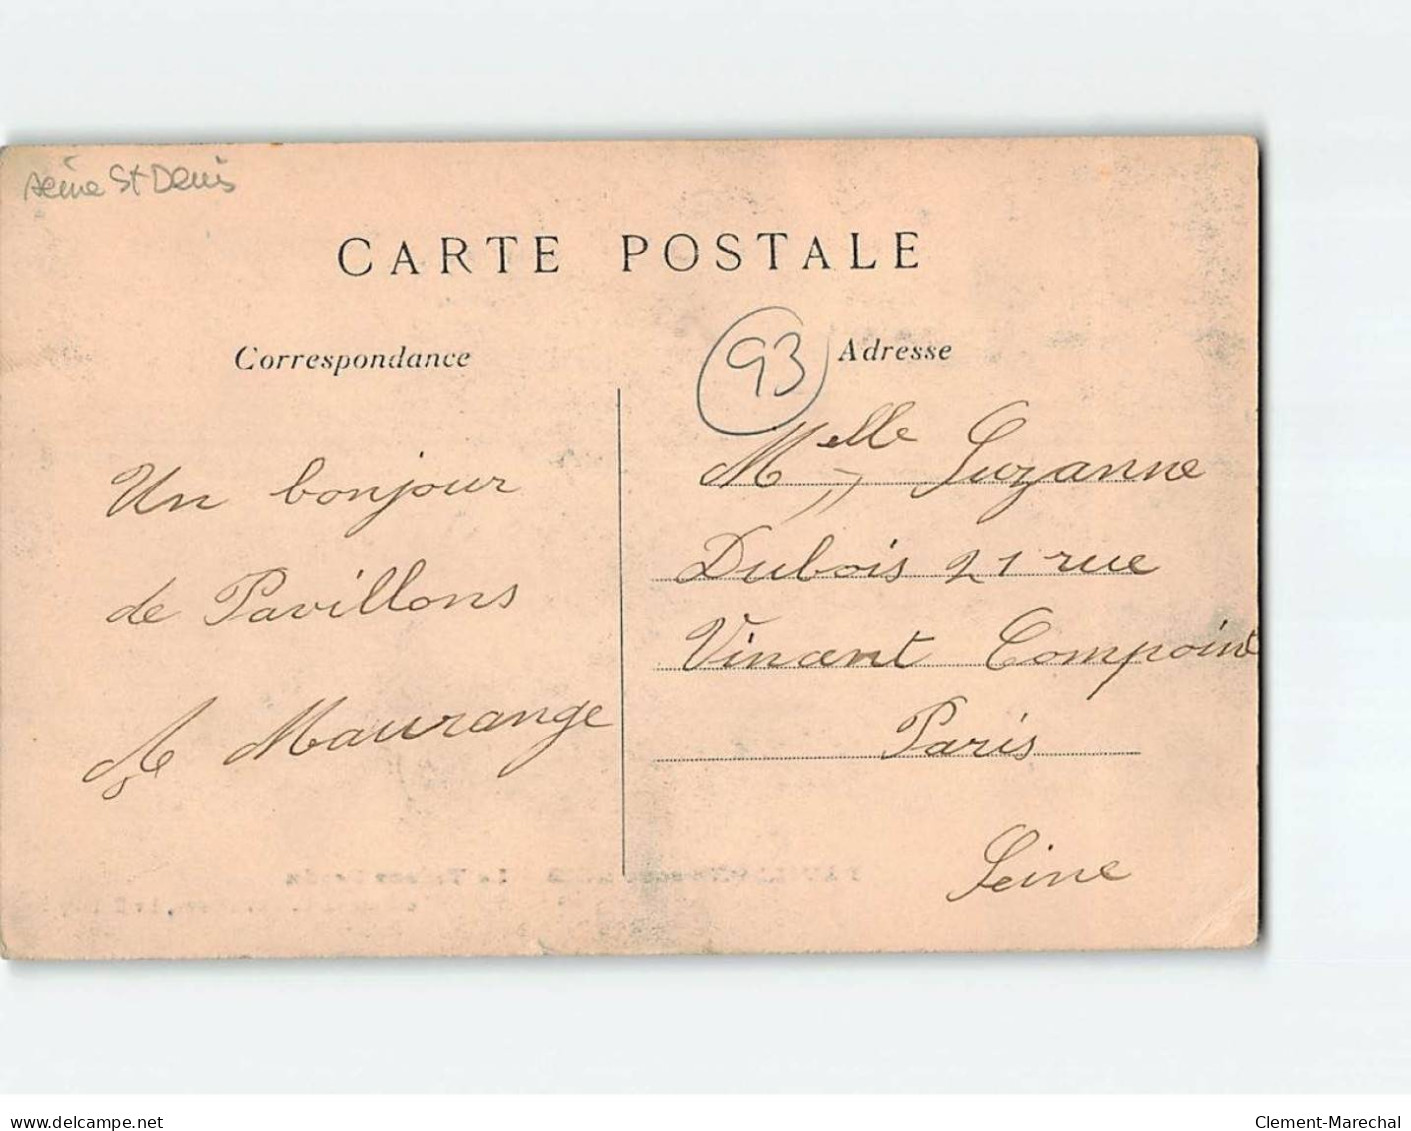 seine St Denis
CARTE POSTALE
Correspondance
93
Adresse
Un bonjour
de Pavillons
Maurange
Melle Suzanne
Dubois 21 rue
Vincent Compoint
Paris
Seine
www.delcampe.net
Clement-Marechal